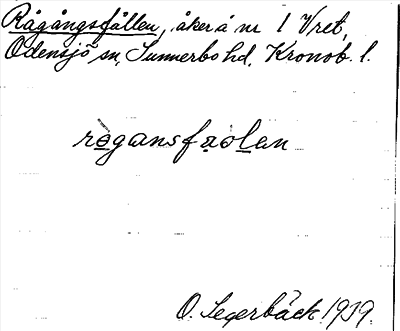 Rågångsfållen, åker å nr 1 Vret,
Odensjö sn, Sunnerbo hd, Kronob. l.
røgansfaolen
O. Segerbäck 1919.